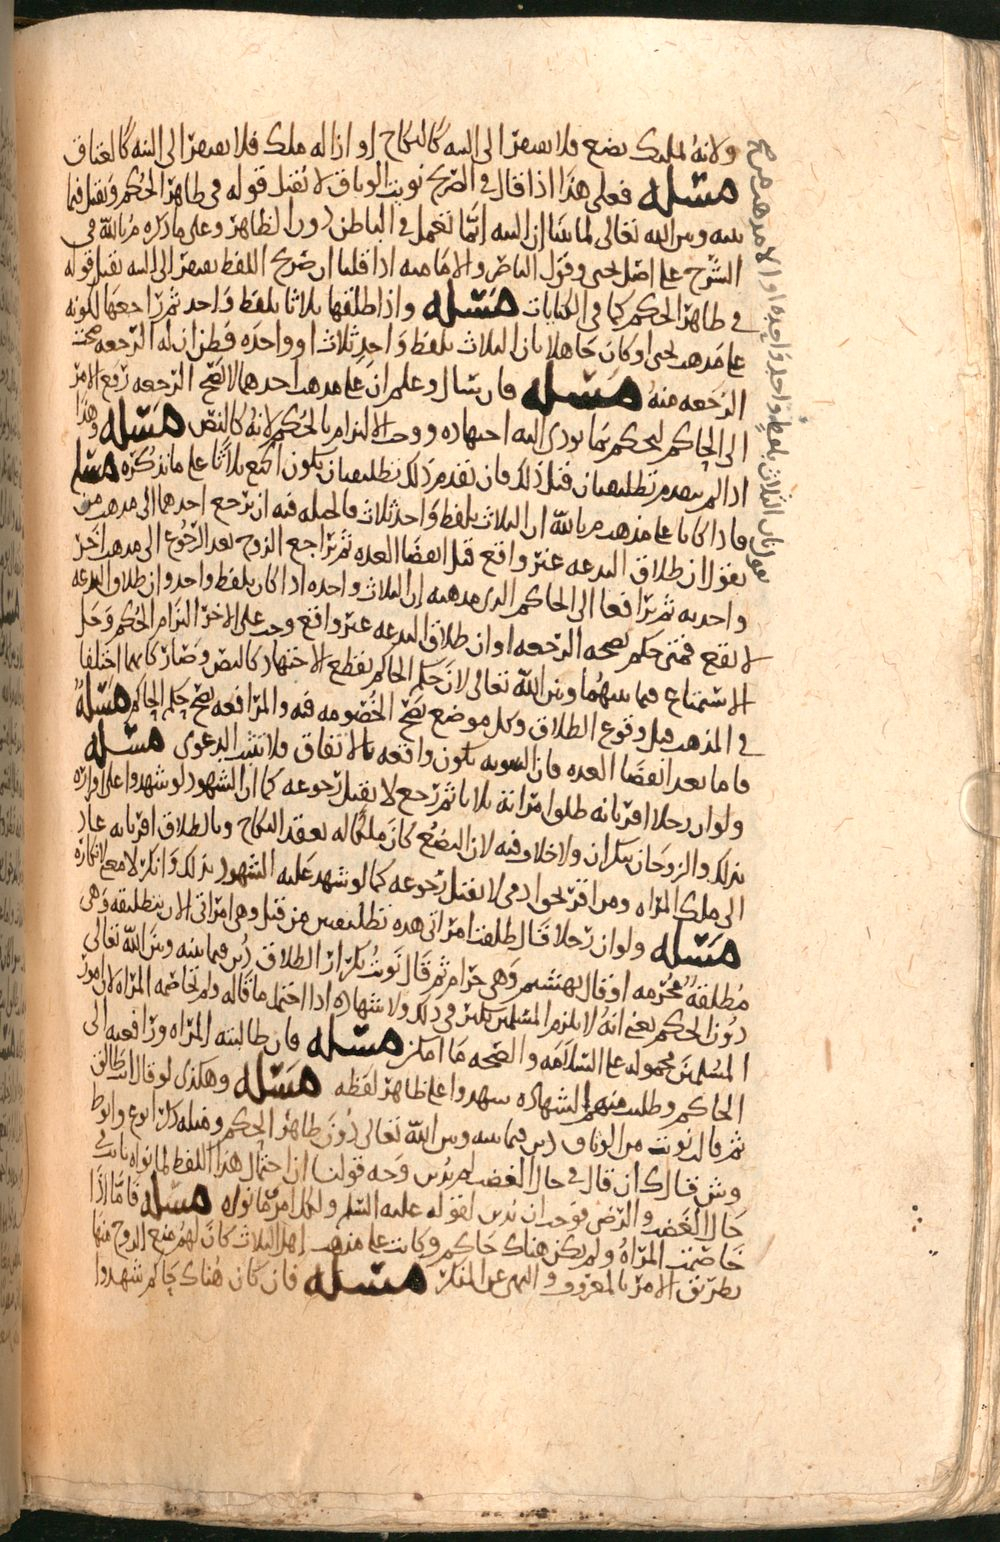 ولانه لملك بضع فلا يفتقر الى النية كالنكاح او ازالة ملك فلا يفتقر الى النية كالعتاق
مسئلة فعلى هذا اذا قال في الصريح نويت الوثاق لا يقبل قوله في ظاهر الحكم ويقبل فيما
بينه وبين الله تعالى لما بينا ان النية انما تعمل في الباطن دون الظاهر وعلى ما ذكره م بالله في
الشرح على اصل يحيى وقول الناصر والامامية اذا قلنا ان صريح اللفظ يفتقر الى النية يقبل قوله
في ظاهر الحكم كما في الكنايات مسئلة واذا طلقها ثلاثا بلفظ واحد ثم راجعها لكونه
على مذهب يحيى او كان جاهلا بان الثلاث بلفظ واحد ثلاث او واحدة فظن ان له الرجعة صحت
الرجعة منه مسئلة فان تشاجرا وعلم ان على مذهب احدهما لا تصح الرجعة رفع الامر
الى الحاكم ليحكم بما يؤدي اليه اجتهاده ووجب الالتزام بالحكم لانه كالنص مسئلة وهذا
اذا لم يتقدم تطليقتان قبل ذلك فان تقدم ذلك تطليقتان يكون الجميع ثلاثا على ما نذكره مسئلة
فاذا كانا على مذهب م بالله ان الثلاث بلفظ واحد ثلاث فالحيلة فيه ان يرجع احدهما الى مذهب من
يقول ان طلاق البدعة غير واقع قبل انقضا العدة ثم يراجع الزوج بعد الرجوع الى مذهب اخر
واحدية ثم يرافعا الى الحاكم الذي مذهبه ان الثلاث واحدة اذا كان بلفظ واحد وان طلاق البدعة
لا يقع فمتى حكم بصحة الرجعة او ان طلاق البدعة غير واقع وجب على الاخر التزام الحكم وحل
الاستمتاع فيما بينهما وبين الله تعالى لان حكم الحاكم يقطع الاجتهاد كالنص وصار كانهما اختلفا
في المذهب قبل وقوع الطلاق وكل موضع تصح الخصومة فيه والمرافعة يصح حكم الحاكم مسئلة
فاما بعد انقضا العدة فان البينونة تكون واقعة بالاتفاق ولا تثبت الدعوى مسئلة
ولو ان رجلا اقر بانه طلق امراته ثلاثا ثم رجع لا يقبل رجوعه كما ان الشهود لو شهدوا على اقراره
بذلك والزوجان ينكران ولا خلاف فيه لان البضع كان ملكا له بعقد النكاح وبالطلاق اقر بانه عاد
الى ملك المراة ومن اقر بحق ادمي لا يقبل رجوعه كما لو شهد عليه الشهود بذلك وانكر لا معنى لانكاره
مسئلة ولو ان رجلا قال طلقت امراتي هذه تطليقتين من قبل وهي امراتي الان بتطليقة وهي
مطلقة محرمة او قال بهشتم وهي حرام ثم قال نويت تكرار الطلاق دين فيما بينه وبين الله تعالى
دون الحكم يعني انه لا يلزم المسلمين نكير في ذلك ولا شهادة اذا احتمل ما قاله ولم تخاصمه المراة لان امور
المسلمين محمولة على السلامة والصحة ما امكن مسئلة فان طالبته المراة ورافعته الى
الحاكم وطلبت منهم الشهادة شهدوا على ظاهر لفظه مسئلة وهكذى لو قال انت طالق
ثم قال نويت من الوثاق دين فيما بينه وبين الله تعالى دون ظاهر الحكم
وش قال ك ان قال في حال الغضب لم يدين وجه قولنا ان احتمال هذا اللفظ لما نواه ثابت في
حال الغضب والرضى فوجب ان يدين لقوله عليه السلم ولكل امرئ ما نواه مسئلة فاما اذا
خاصمت المراة ولم يكن هناك حاكم وكانت على مذهب اهل الثلاث كان لهم منع الزوج منها
بطريق الامر بالمعروف والنهي عن المنكر مسئلة فان كان هناك حاكم شهدوا
يقول بان الثلاث بلفظ واحد واحدة